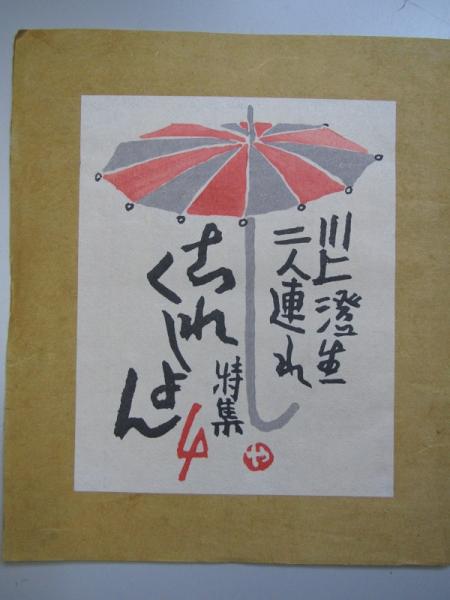 川上澄生
二人連れ
特集
これ
くしょん
4